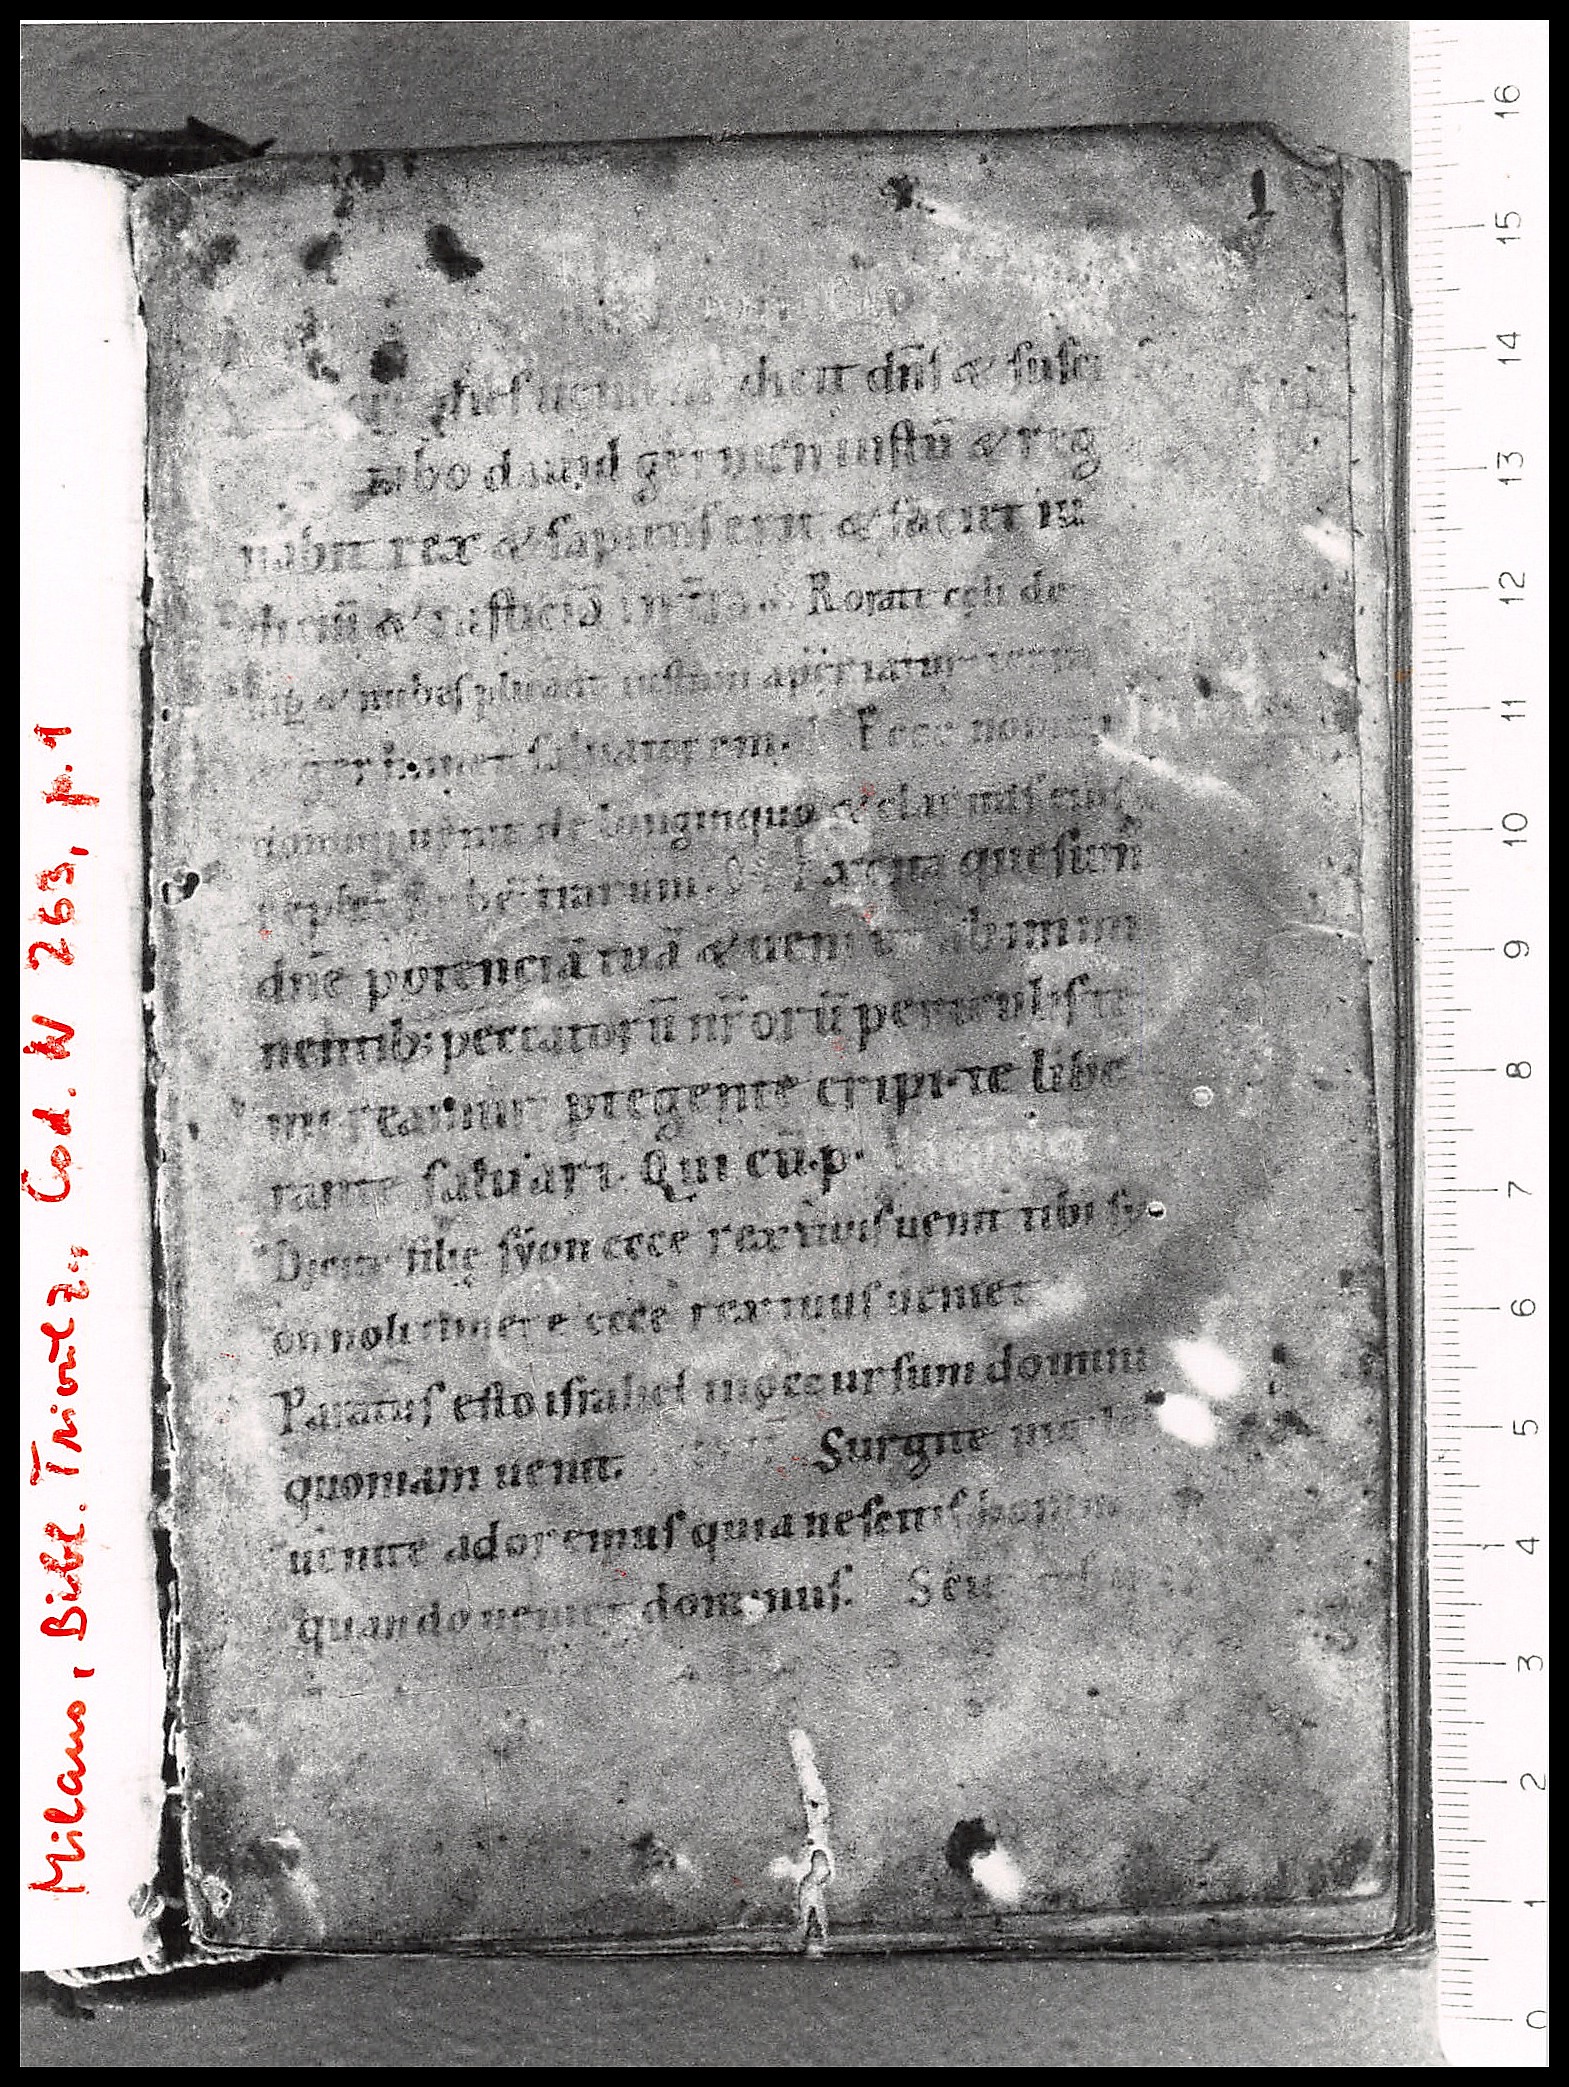 1
dies ueni dicit dñs & susci
bo dauid germen iustũ & reg
nabit rex & sapiens erit & faciet iu
diciũ & iusticiã in Rorate celi de
& nubes pluant iustum aperiatur terra
& germinet saluatorem. Ecce nomen
domini uenit de longinquo & claritas eius
replet orbẽ terrarum. Excita quesum̃
dñe potenciã tuã & ueni ut ab immi
nentib; peccatorũ nr̃orũ periculis te
mereamur ptegente eripi te libe
rante saluari. Qui cũ.p.
Dicite filie syon ecce rex tuus uenit tibi sy
on noli timere ecce rex tuus ueniet
Paratus esto israhel in occursum domini
quoniam uenit. Surgite
uenite adoremus quia nescitis horam
quando ueniet dominus. Scu
Milano, Bibl. Trivulz., Cod. N 263, p. 1
16
15
14
13
12
11
10
9
8
7
6
5
4
3
2
1
0